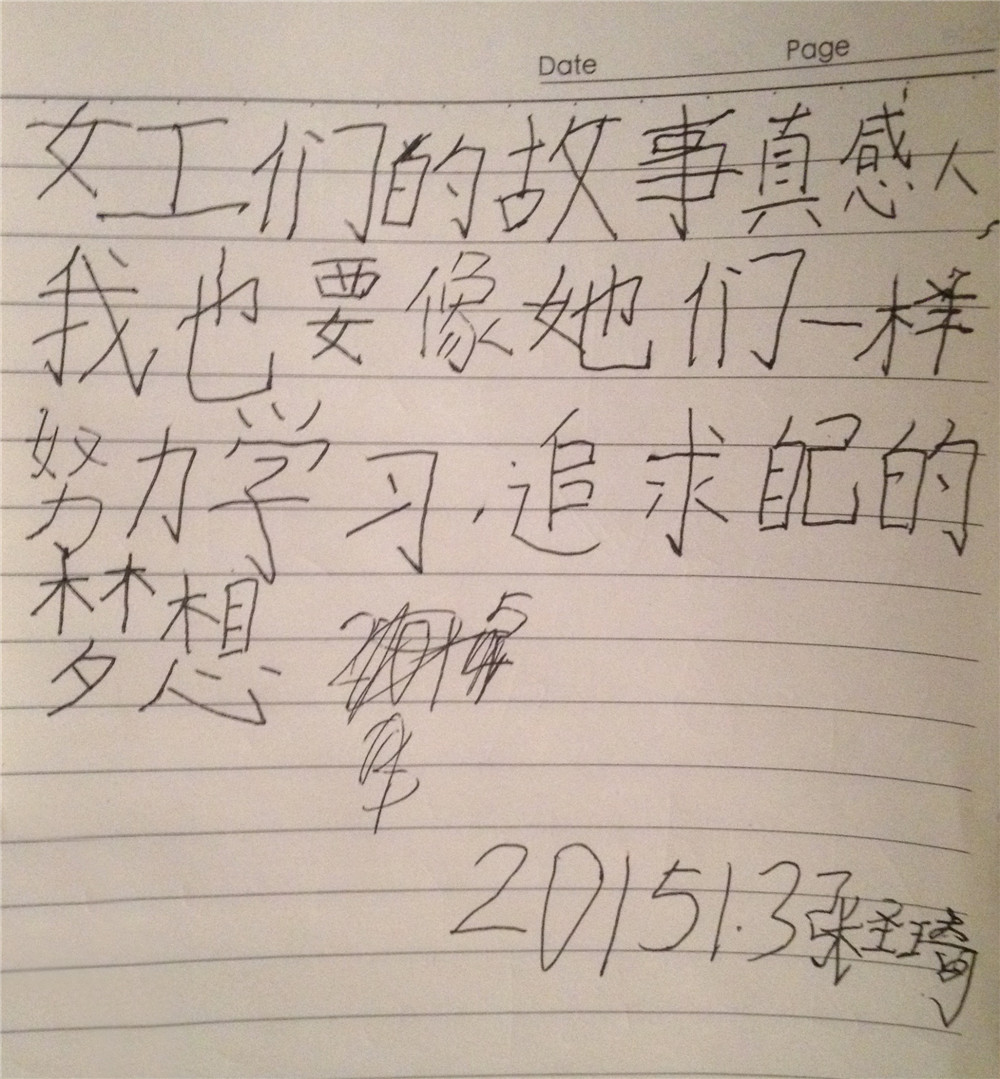 Date Page
女工们的故事真感人，
我也要像她们一样
努力学习，追求自己的
梦想
2015 1.3 张圣琦